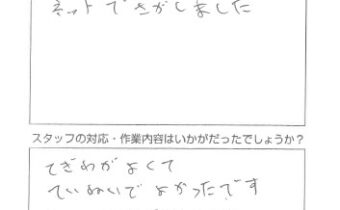 ネットでさがしました
スタッフの対応・作業内容はいかがだったでしょうか?
てぎわがよくて
ていねいでよかったです